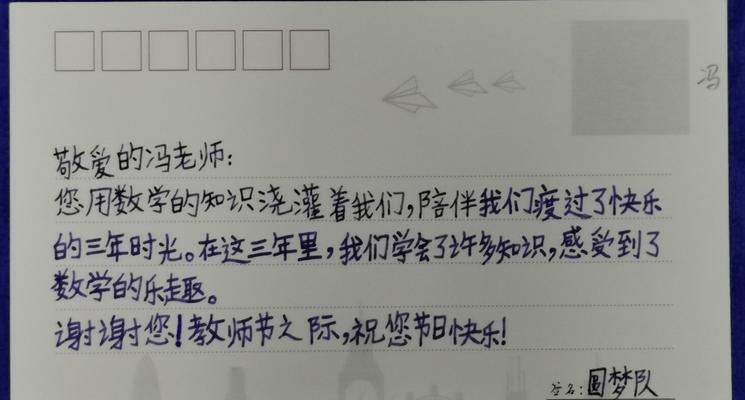 冯
敬爱的冯老师:
您用数学的知识浇灌着我们,陪伴我们度过了快乐
的三年时光。在这三年里,我们学会了许多知识,感受到了
数学的乐趣。
谢谢您!教师节之际,祝您节日快乐!
签名:圆梦队